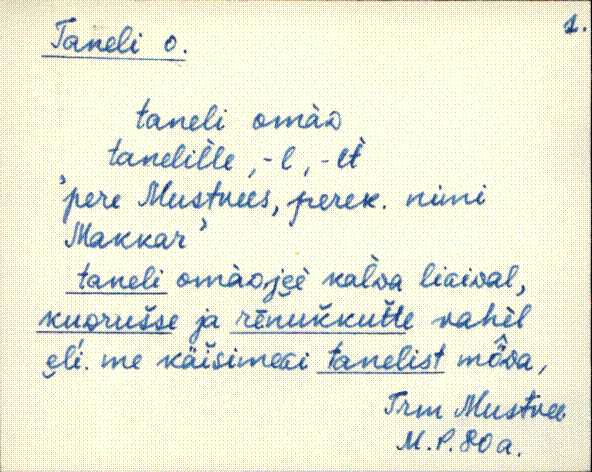 1.
Taneli o.
taneli omàD
tanelil̀le, -l, -lt̀
'pere Mustvees, perek. nimi
Makkar'
taneli omàD, jeè kal̀Da
kuorušse ja rēnukkušte vahèl
eli. me käisimeGi tanelist
Trm Mustvee
M.P. 80 a.